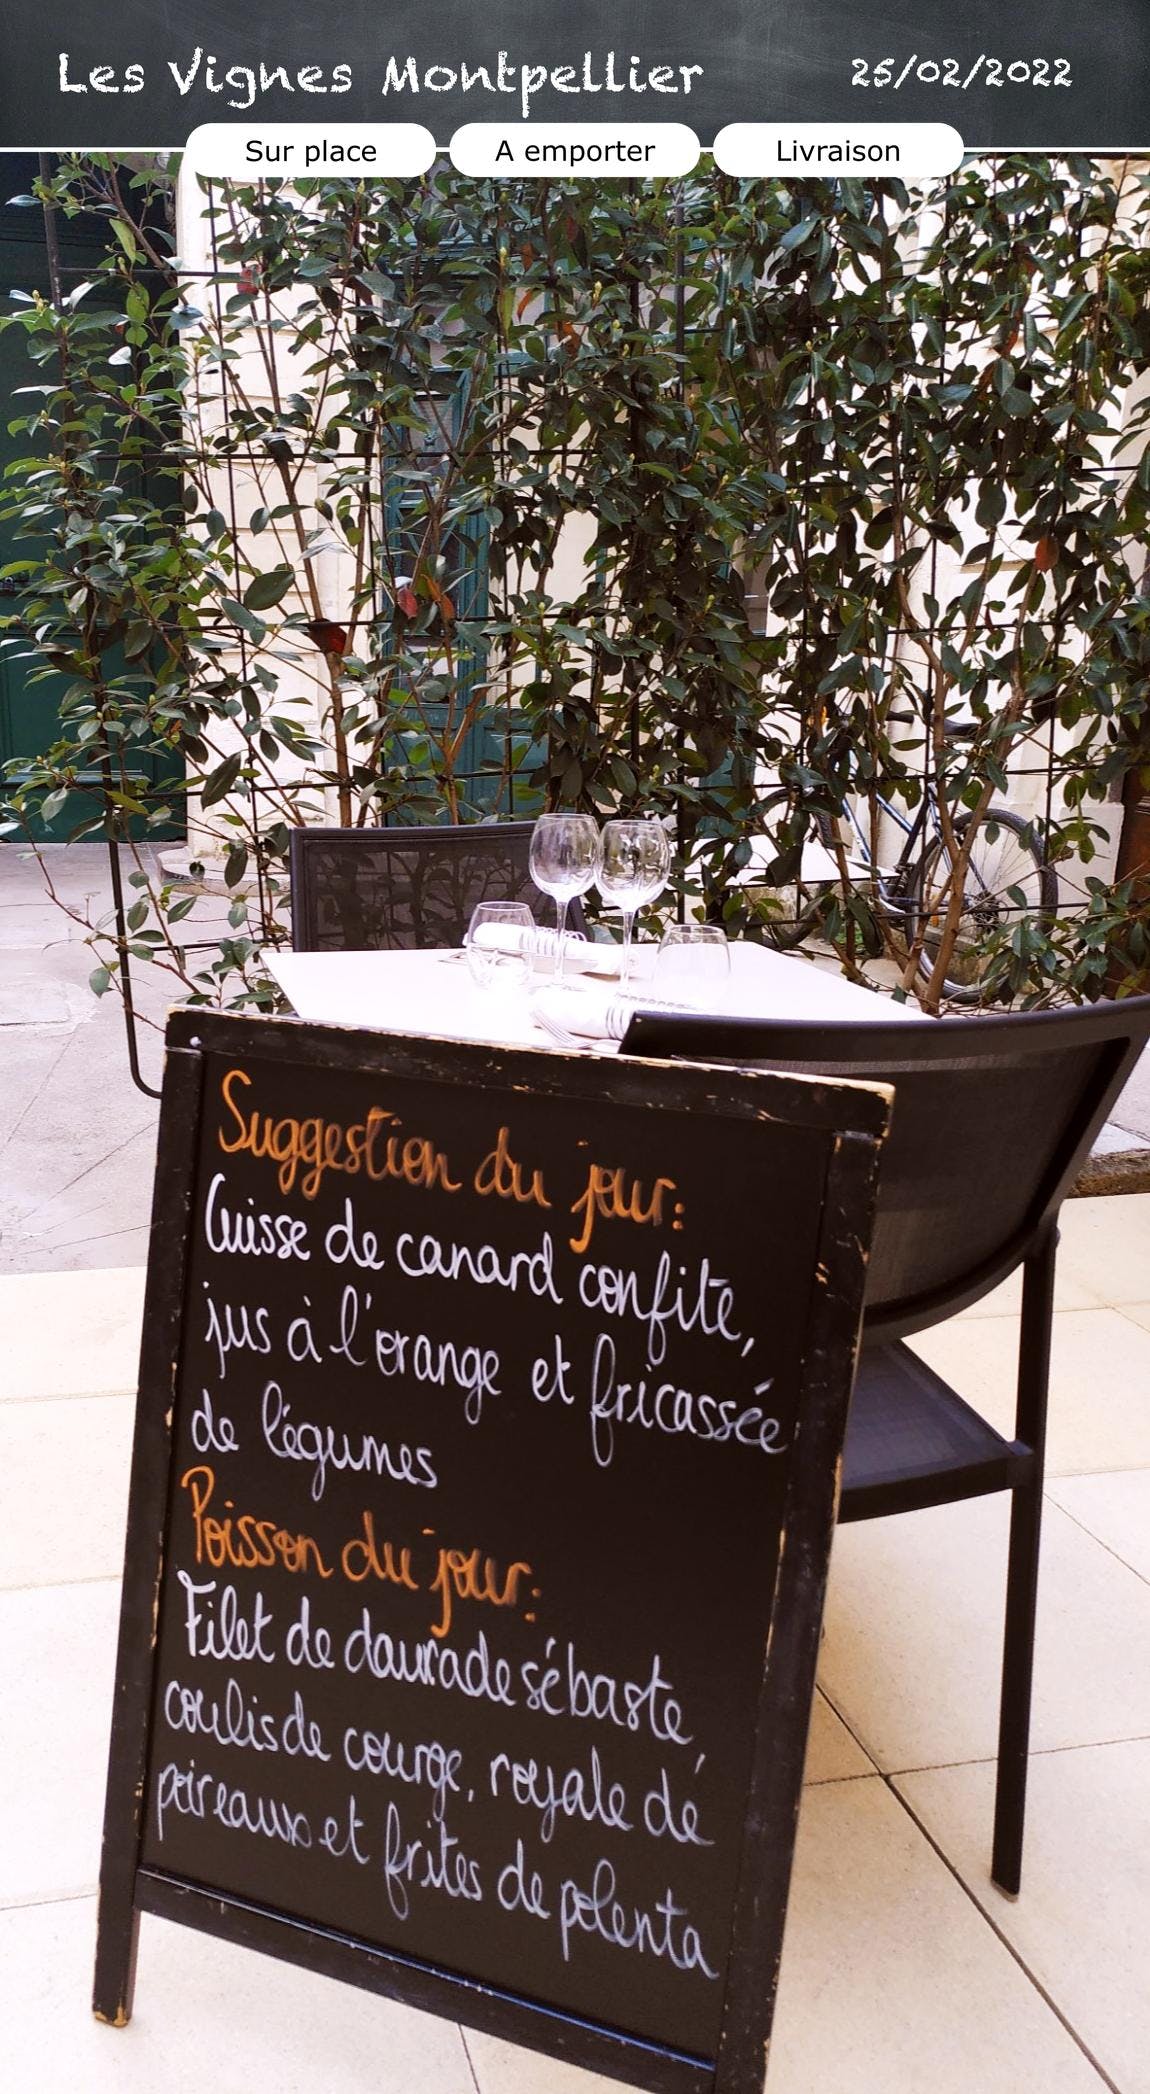 Les Vignes Montpellier
25/02/2022
Sur place
A emporter
Livraison
Suggestion du jour:
Cuisse de canard confite,
jus à l'orange et fricassée
de légumes
Poisson du jour:
Filet de daurade sébaste,
coulis de courge, royale de
poireaux et frites de polenta